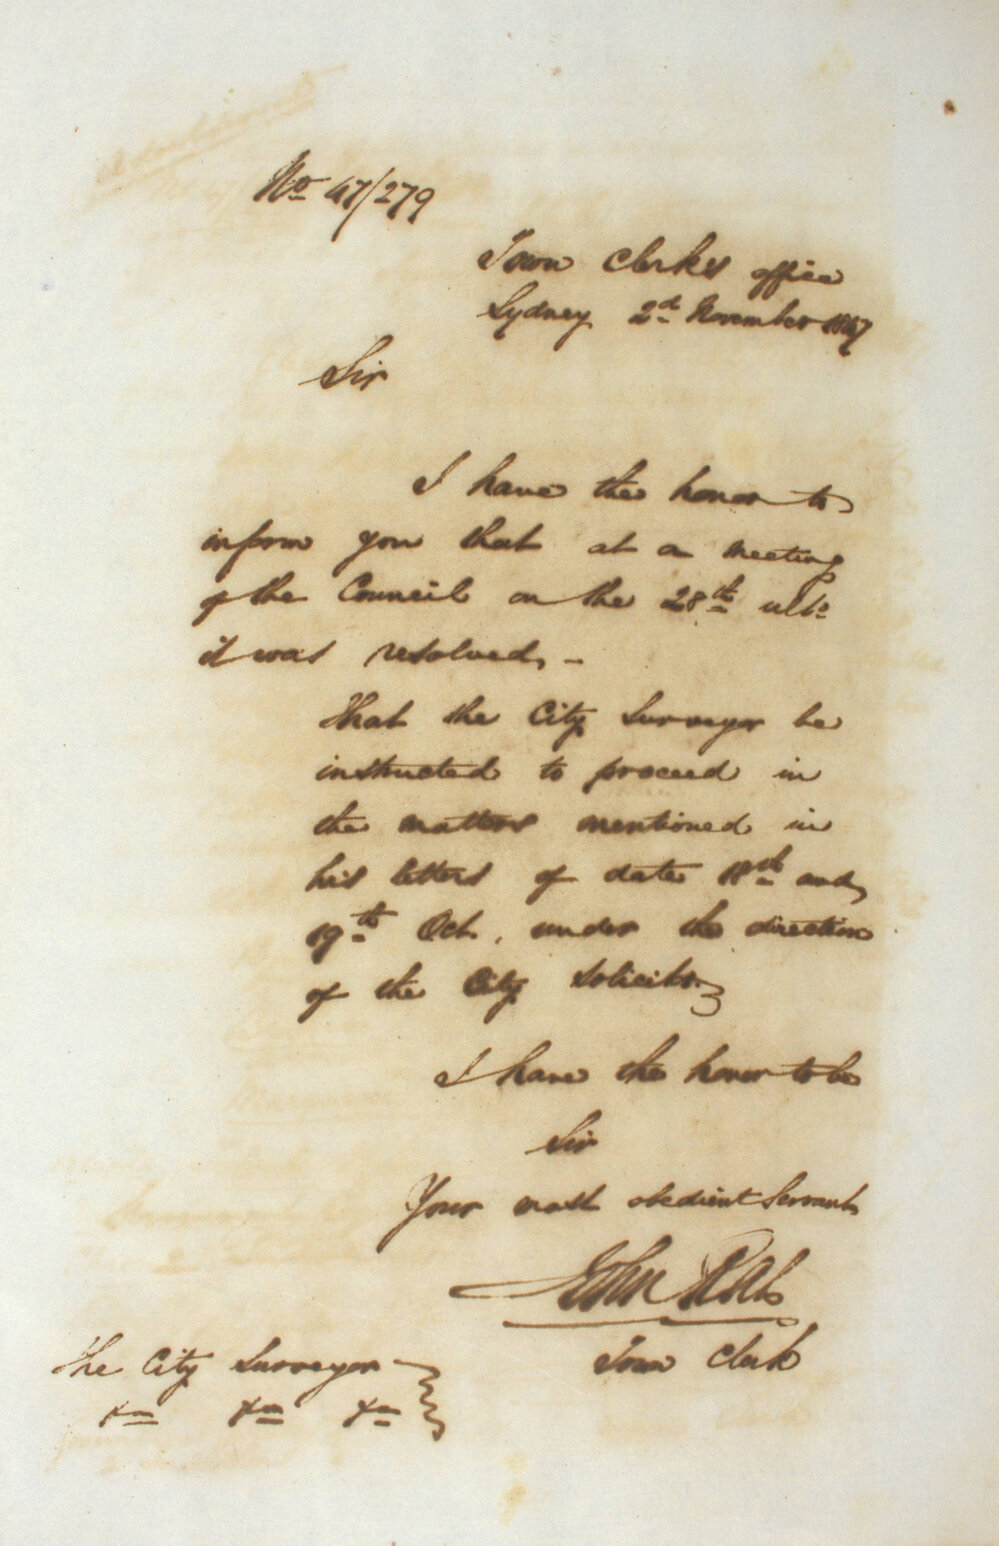 No 47/279
Town Clerks office
Sydney 2d November 1847
Sir
I have the honor to
inform you that at a meeting
of the Council on the 28th ulto
it was resolved, -
That the City Surveyor be
instructed to proceed in
the matters mentioned in
his letters of date and
19th Oct. under the direction
of the City Solicitor
I have the honor to be
Sir
Your most obedient Servant
John Rae
Town Clerk
The City Surveyor